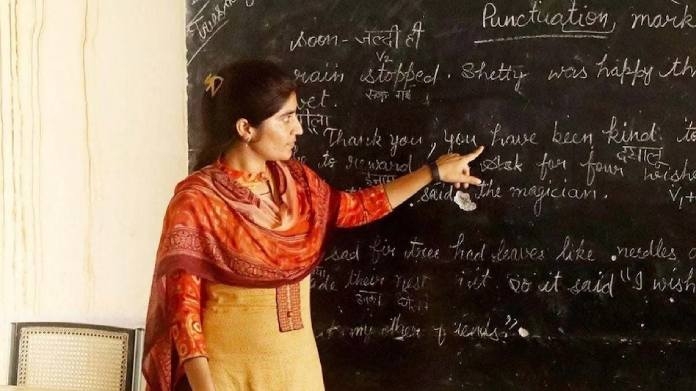 Punctuation mark
soon - जल्दी ही
V2
rain stopped. Shetty was happy th
रुक गई
wet.
"Thank you, you have been kind to
दयालु
to reward for four wishe
इनाम
said the magician. V1+
sad fir tree had leaves like needles
their nest in it. So it said "I wish
other friends".